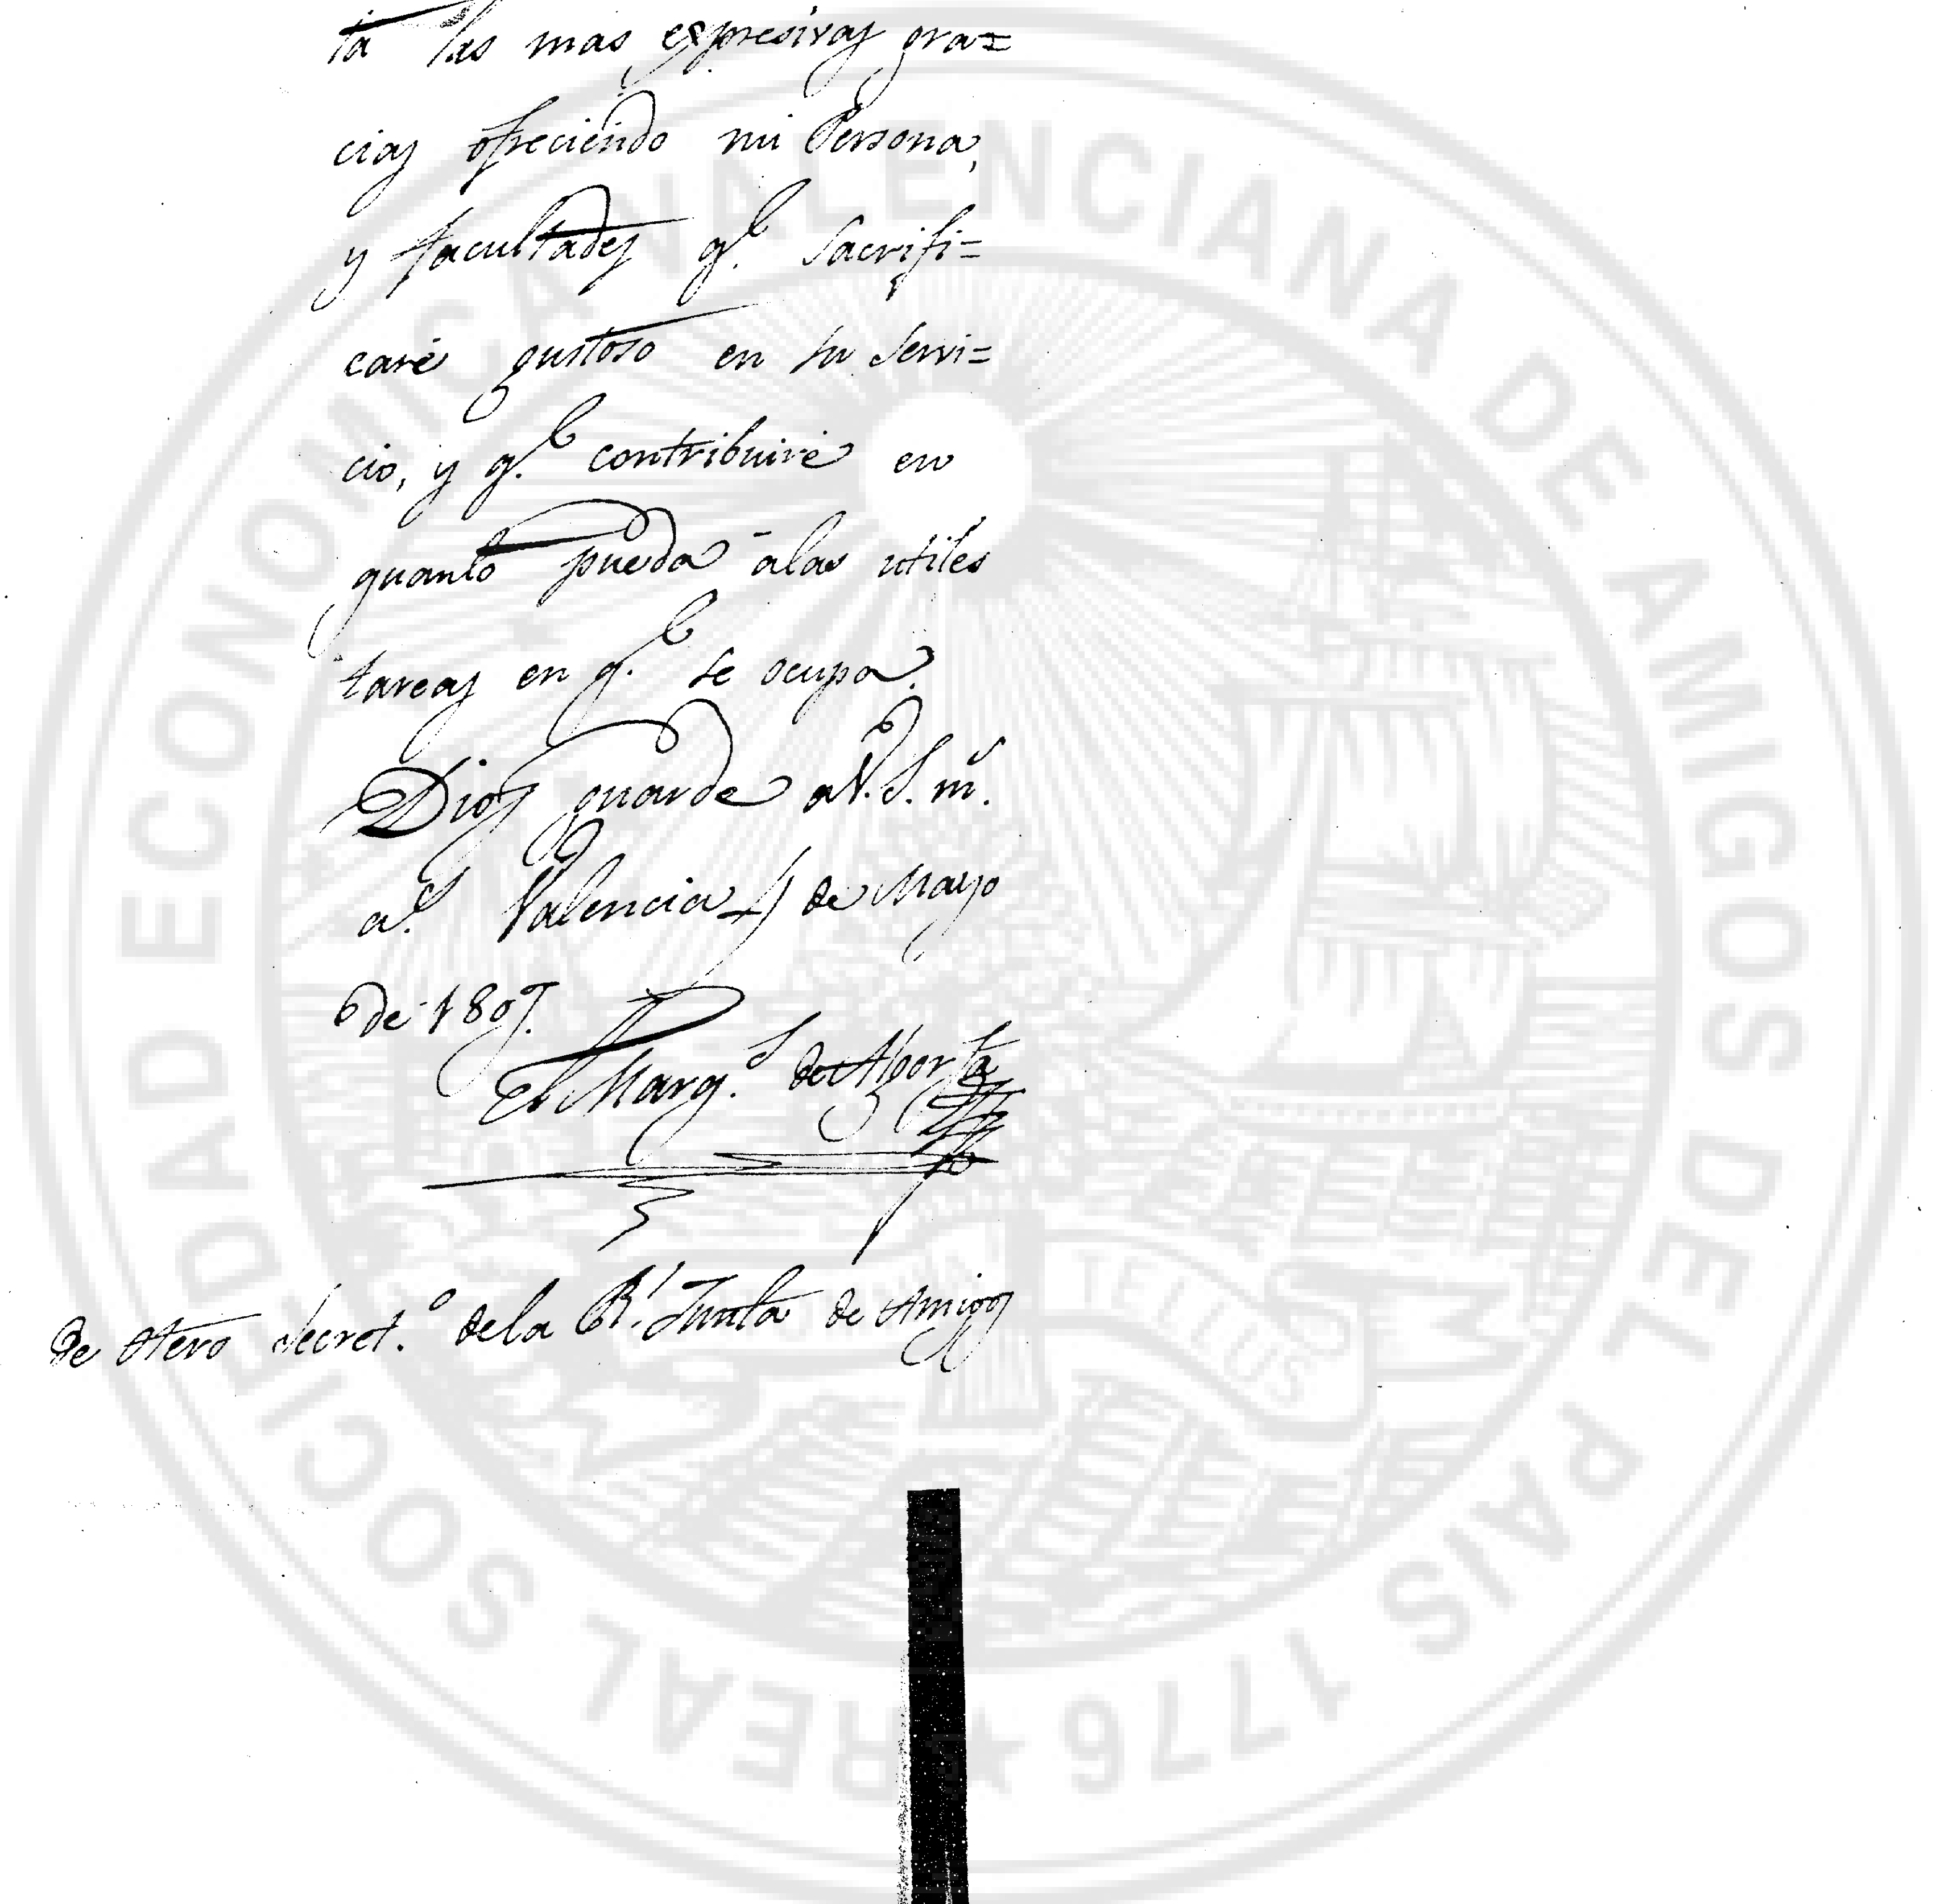 ta las mas expresivas gra=
cias ofreciendo mi Persona,
y facultades q.e Sacrifi=
caré gustoso en su Servi=
cio, y q.e contribuiré en
quanto pueda á las utiles
tareas en q.e se ocupa.
Dios guarde a V. S. m.s
a.s Valencia y de Mayo
6 de 1807.
El Marq.s de
de Otero Secret.o de la R.l Junta de Amigos
REAL SOCIEDAD ECONOMICA VALENCIANA DE AMIGOS DEL PAIS 1776